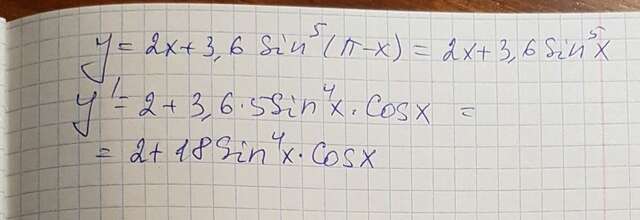 y = 2x + 3,6 Sin⁵(π-x) = 2x + 3,6 Sin⁵x
y' = 2 + 3,6 · 5 Sin⁴x · Cosx =
= 2 + 18 Sin⁴x · Cosx